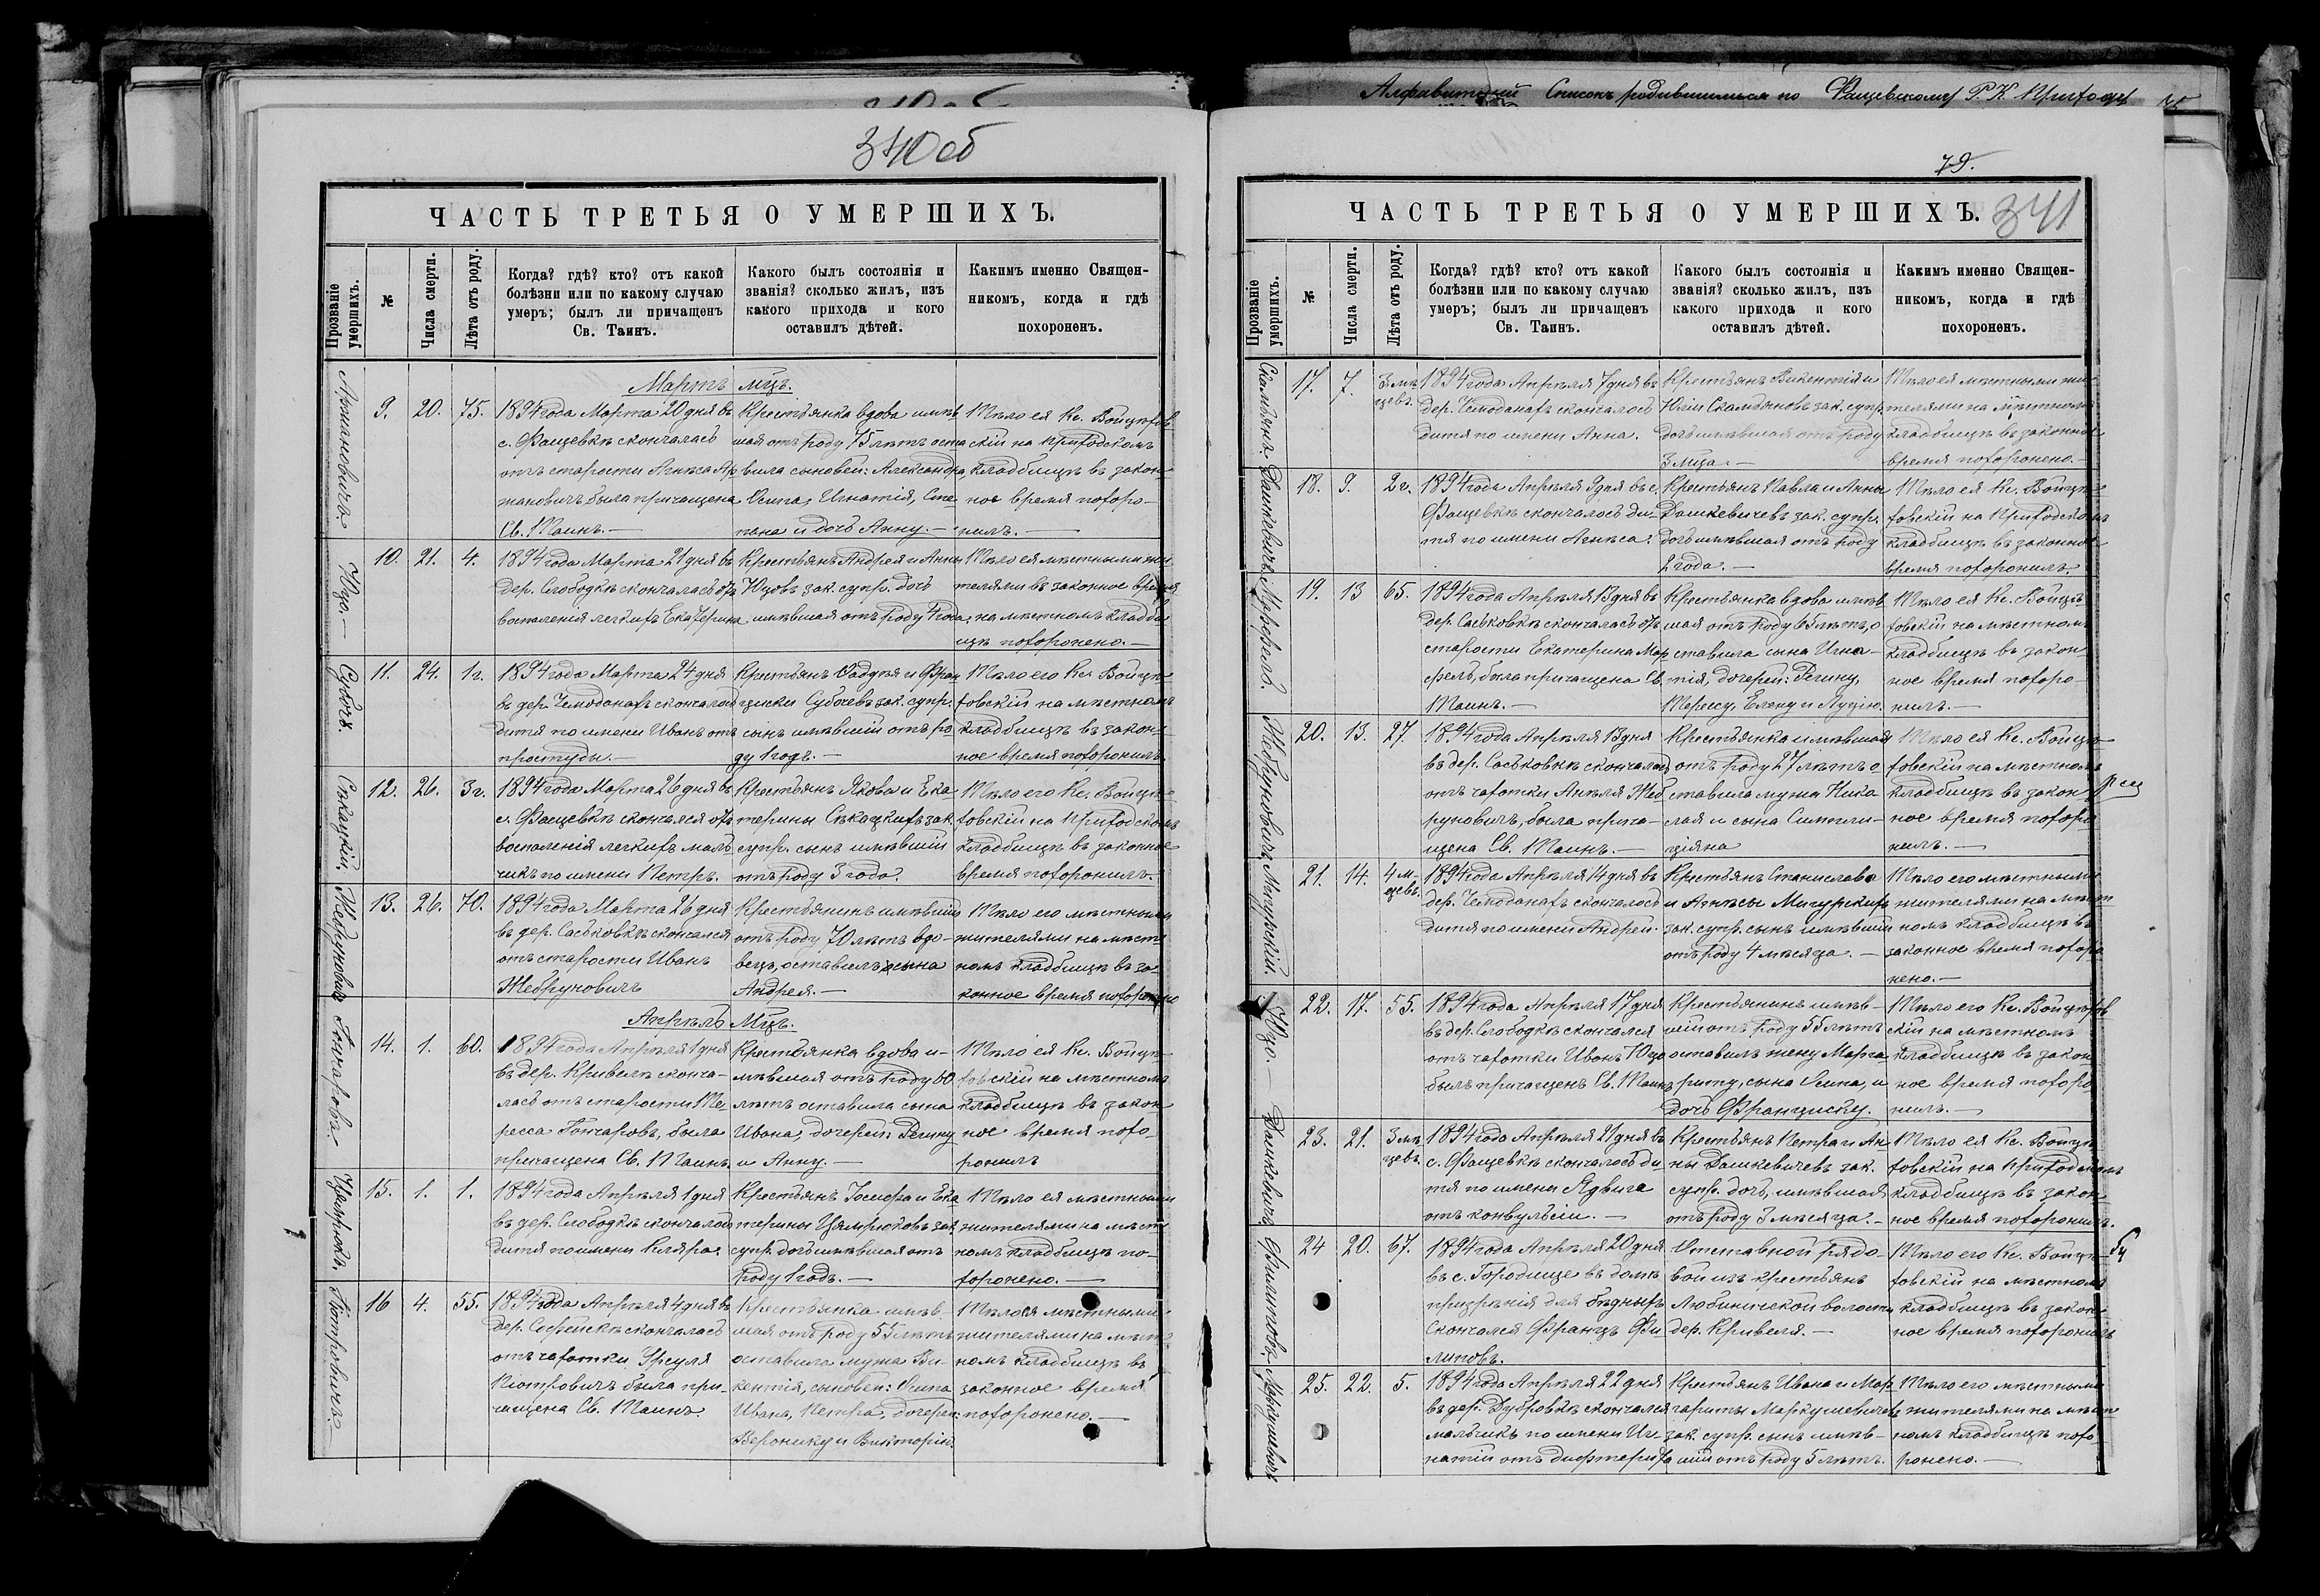 Алфавитный Списокъ родившимся по Фащевскому Р. К. Приходу
340 об
ЧАСТЬ ТРЕТЬЯ О УМЕРШИХЪ.
Прозваніе умершихъ.
№
Числа смерти.
Лѣта отъ роду.
Когда? гдѣ? кто? отъ какой
болѣзни или по какому случаю
умеръ; былъ ли причащенъ
Св. Таинъ.
Какого былъ состоянія и
званія? сколько жилъ, изъ
какого прихода и кого
оставилъ дѣтей.
Какимъ именно Священ-
никомъ, когда и гдѣ
похороненъ.
Мартъ мцъ.
9. 20. 75.
1894 года Марта 20 дня въ
с. Фащевкѣ скончалась
отъ старости Агнѣса Ар
мановичъ была причащена
Св. Таинъ.—
Крестьянка вдова имѣв
шая отъ роду 75 лѣтъ оста
вила сыновей: Александра,
Осипа, Игнатія, Сте
пана и дочь Анну.—
Тѣло ея Кс. Войцѣхов
скій на приходскомъ
кладбищѣ въ закон
ное время похоро—
нилъ.—
Юцо.—
10. 21. 4.
1894 года Марта 21 дня въ
дер. Слободкѣ скончалась отъ
воспаленія легкихъ Екатерина
Крестьянъ Андрея и Анны
Юцовъ зак. супр. дочь
имѣвшая отъ роду 4 года.
Тѣло ея мѣстными жи
телями въ законное время
на мѣстномъ кладби
щѣ похоронено.—
Субочъ.
11. 24. 1 г.
1894 года Марта 24 дня
въ дер. Чемоданахъ скончалось
дитя по имени Иванъ отъ
простуды.—
Крестьянъ Фадѣя и Фран
циски Субочевъ зак. супр.
сынъ имѣвшій отъ ро
ду 1 годъ.—
Тѣло его Кс. Войцѣ—
ховскій на мѣстномъ
кладбищѣ въ закон
ное время похоронилъ.
Сѣкацкій.
12. 26. 3 г.
1894 года Марта 26 дня въ
с. Фащевкѣ скончался отъ
воспаленія легкихъ маль
чикъ по имени Петръ.
Крестьянъ Якова и Ека—
терины Сѣкацкихъ зак.
супр. сынъ имѣвшій
отъ роду 3 года.
Тѣло его Кс. Войцѣ—
ховскій на приходскомъ
кладбищѣ въ законное
время похоронилъ.
Жебруновичъ
13. 26. 70.
1894 года Марта 26 дня
въ дер. Саськовкѣ скончался
отъ старости Иванъ
Жебруновичъ
Крестьянинъ имѣвшій
отъ роду 70 лѣтъ вдо—
вецъ, оставилъ сына
Андрея.—
Тѣло его мѣстными
жителями на мѣст
номъ кладбищѣ въ за
конное время похоронено
Апрѣль Мцъ.
Гончарова.
14. 1. 60.
1894 года Апрѣля 1 дня
въ дер. Кривелѣ сконча—
лась отъ старости Те—
ресса Гончаровъ, была
причащена Св. Таинъ
Крестьянка вдова и—
мѣвшая отъ роду 60
лѣтъ оставила сына
Ивана, дочерей: Регину
и Анну.—
Тѣло ея Кс. Войцѣ—
ховскій на мѣстномъ
кладбищѣ въ закон
ное время похо—
ронилъ
15. 1. 1.
1894 года Апрѣля 1 дня
въ дер. Слободкѣ скончалось
дитя по имени Кляра.
Крестьянъ Іосифа и Ека
терины Цямрюковъ зак.
супр. дочь имѣвшая отъ
роду 1 годъ.—
Тѣло ея мѣстными
жителями на мѣст
номъ кладбищѣ по—
хоронено.—
Піотровичъ—
16 4. 55.
1894 года Апрѣля 4 дня въ
дер. Софейскѣ скончалась
отъ чахотки Урсуля
Піотровичъ была при—
чащена Св. Таинъ.
Крестьянка имѣв—
шая отъ роду 55 лѣтъ
оставила мужа Ви—
кентія, сыновей: Осипа
Ивана, Петра, дочерей:
Веронику и Викторію.
Тѣло ея мѣстными
жителями на мѣст
номъ кладбищѣ въ
законное время
похоронено.—
79.
341
ЧАСТЬ ТРЕТЬЯ О УМЕРШИХЪ.
Прозваніе умершихъ.
№
Числа смерти.
Лѣта отъ роду.
Когда? гдѣ? кто? отъ какой
болѣзни или по какому случаю
умеръ; былъ ли причащенъ
Св. Таинъ.
Какого былъ состоянія и
званія? сколько жилъ, изъ
какого прихода и кого
оставилъ дѣтей.
Какимъ именно Священ-
никомъ, когда и гдѣ
похороненъ.
17. 7. 3 мѣ
цевъ.
1894 года Апрѣля 7 дня въ
дер. Чемоданахъ скончалось
дитя по имени Анна.
Крестьянъ Викентія и
Юліи Скамьяновъ зак. супр.
дочь имѣвшая отъ роду
3 мца.—
Тѣло ея мѣстными жи
телями на мѣстномъ
кладбищѣ въ законное
время похоронено.—
Дашкевичъ
18. 9. 2 г.
1894 года Апрѣля 9 дня въ с.
Фащевкѣ скончалось ди—
тя по имени Агнѣса.
Крестьянъ Павла и Анны
Дашкевичевъ зак. супр.
дочь имѣвшая отъ роду
2 года.—
Тѣло ея Кс. Войцѣ—
ховскій на приходскомъ
кладбищѣ въ законное
время похоронилъ.
19. 13 65.
1894 года Апрѣля 13 дня въ
дер. Саськовкѣ скончалась отъ
старости Екатерина Мар
фель, была причащена Св.
Таинъ.—
Крестьянка вдова имѣв
шая отъ роду 65 лѣтъ, о
ставила сына Игна—
тія, дочерей: Регину,
Терессу, Елену и Луцію.
Тѣло ея Кс. Войцѣ
ховскій на мѣстномъ
кладбищѣ въ закон
ное время похоро—
нилъ.—
Жебруновичъ
20. 13. 27.
1894 года Апрѣля 13 дня
въ дер. Саськовкѣ скончалась
отъ чахотки Анѣля Жеб
руновичъ, была прича—
щена Св. Таинъ.—
Крестьянка имѣвшая
отъ роду 27 лѣтъ о
ставила мужа Нико
лая и сына Симпли—
ціяна
Тѣло ея Кс. Войцѣ—
ховскій на мѣстномъ
кладбищѣ въ закон
ное время похоро
нилъ.—
Мигурскій.
21. 14. 4 м.
цевъ.
1894 года Апрѣля 14 дня въ
дер. Чемоданахъ скончалось
дитя по имени Андрей.
Крестьянъ Станислава
и Агнѣсы Мигурскихъ
зак. супр. сынъ имѣвшій
отъ роду 4 мѣсяца.—
Тѣло его мѣстными
жителями на мѣст
номъ кладбищѣ въ
законное время похоро
нено.—
Юцо.—
22. 17. 55.
1894 года Апрѣля 17 дня
въ дер. Слободкѣ скончался
отъ чахотки Иванъ Юцо
былъ причащенъ Св. Таинъ
Крестьянинъ имѣв—
шій отъ роду 55 лѣтъ
оставилъ жену Марга
риту, сына Осипа, и
дочь Франциску.
Тѣло его Кс. Войцѣхов
скій на мѣстномъ
кладбищѣ въ закон
ное время похоро
нилъ.—
Дашкевичъ
23. 21. 3 мѣ
цевъ.
1894 года Апрѣля 21 дня въ
с. Фащевкѣ скончалось ди
тя по имени Ядвига
отъ конвульсіи.—
Крестьянъ Петра и Ан
ны Дашкевичевъ зак.
супр. дочь, имѣвшая
отъ роду 3 мѣсяца.—
Тѣло ея Кс. Войцѣ
ховскій на приходскомъ
кладбищѣ въ закон
ное время похоронилъ.
Филиповъ
24 20. 67.
1894 года Апрѣля 20 дня
въ с. Городище въ домѣ
призрѣнія для бѣдныхъ
скончался Францъ Фи
липовъ.
Отставной рядо—
вой изъ крестьянъ
Любиничской волости
дер. Кривеля.—
Тѣло его Кс. Войцѣ—
ховскій на мѣстномъ
кладбищѣ въ закон
ное время похоронилъ
Маркушевичъ
25. 22. 5.
1894 года Апрѣля 22 дня
въ дер. Дубровкѣ скончался
мальчикъ по имени Иг—
натій отъ дифтерита
Крестьянъ Ивана и Мар
гариты Маркушевичевъ
зак. супр. сынъ имѣв—
шій отъ роду 5 лѣтъ.
Тѣло его мѣстными
жителями на мѣст
номъ кладбищѣ похо—
ронено.—